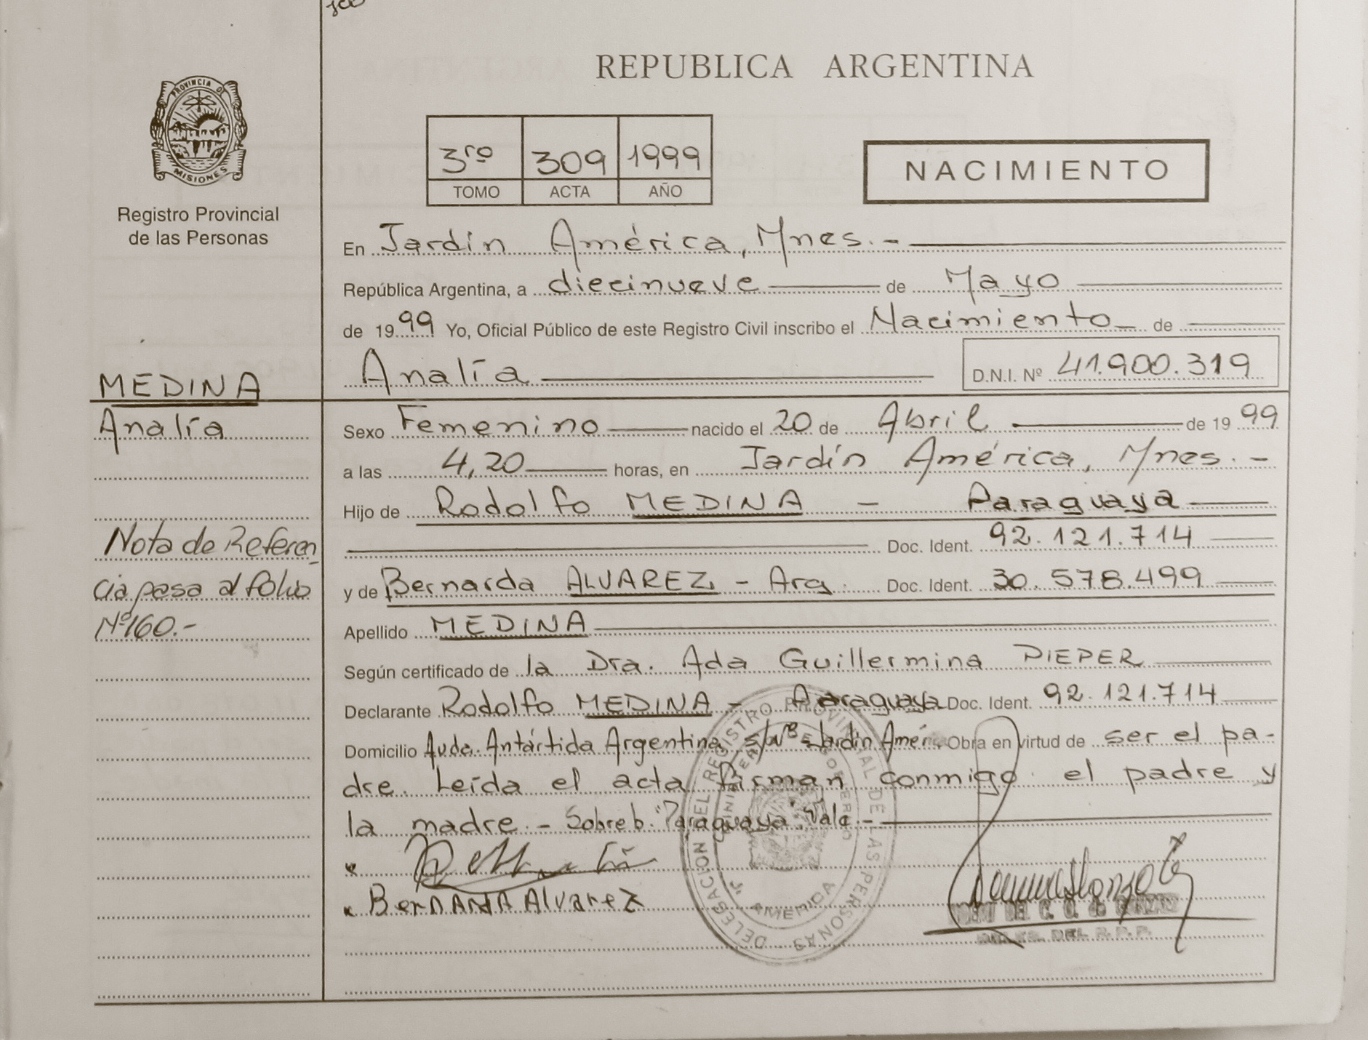 REPUBLICA ARGENTINA
PROVINCIA DE
MISIONES
Registro Provincial
de las Personas
3ro 309 1999
TOMO ACTA AÑO
NACIMIENTO
En Jardín América, Mnes.-
República Argentina, a diecinueve de Mayo
de 1999 Yo, Oficial Público de este Registro Civil inscribo el Nacimiento de
Analía D.N.I. Nº 41.900.319
MEDINA
Analía
Sexo Femenino nacido el 20 de Abril de 1999
a las 4,20 horas, en Jardín América, Mnes.-
Hijo de Rodolfo MEDINA - Paraguaya
Doc. Ident. 92.121.714
y de Bernarda ALVAREZ - Arg. Doc. Ident. 30.578.499
Apellido MEDINA
Según certificado de la Dra. Ada Guillermina PIEPER
Declarante Rodolfo MEDINA - Paraguaya Doc. Ident. 92.121.714
Domicilio Avda. Antártida Argentina, s/Nº Jardín Amér. Obra en virtud de ser el pa-
dre. Leída el acta firman conmigo el padre y
la madre.- Sobreb. "Paraguaya". Vale.-
Bernarda Alvarez
Nota de Referen
cia pasa al folio
Nº160.-
DELEGACION DEL REGISTRO PROVINCIAL DE LAS PERSONAS
J. AMERICA